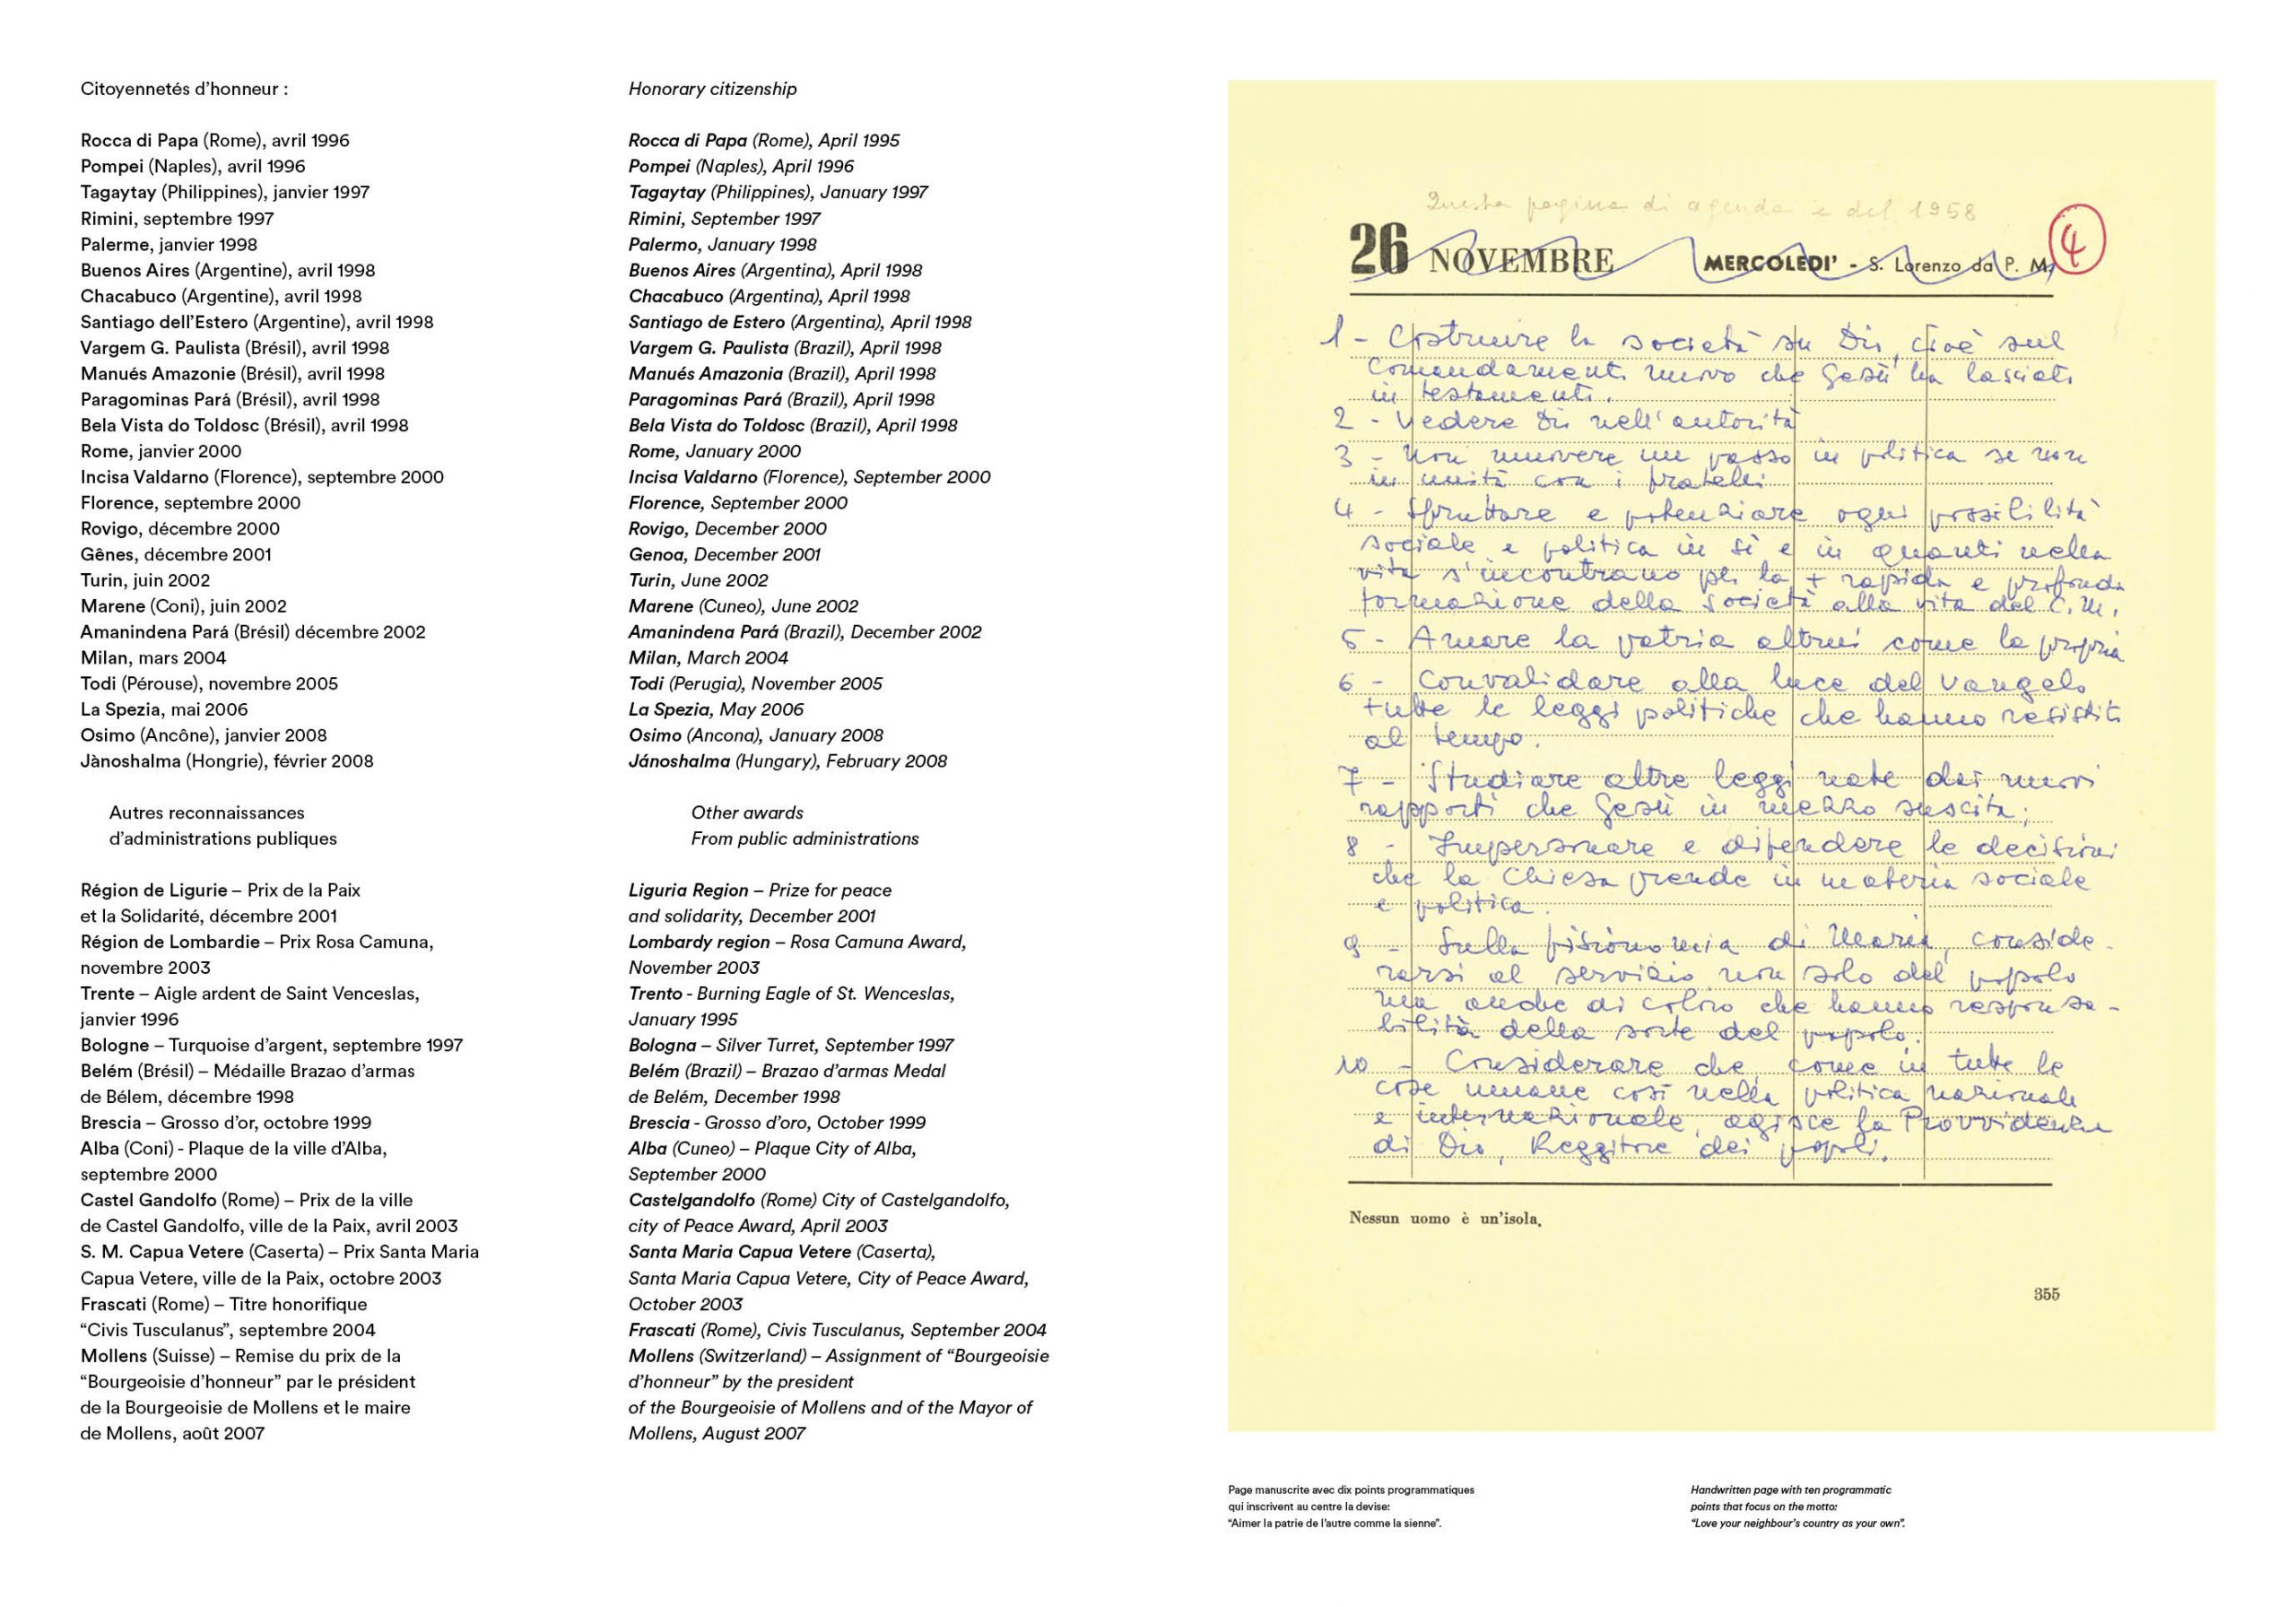 Citoyennetés d’honneur :
Rocca di Papa (Rome), avril 1996
Pompei (Naples), avril 1996
Tagaytay (Philippines), janvier 1997
Rimini, septembre 1997
Palerme, janvier 1998
Buenos Aires (Argentine), avril 1998
Chacabuco (Argentine), avril 1998
Santiago dell’Estero (Argentine), avril 1998
Vargem G. Paulista (Brésil), avril 1998
Manués Amazonie (Brésil), avril 1998
Paragominas Pará (Brésil), avril 1998
Bela Vista do Toldosc (Brésil), avril 1998
Rome, janvier 2000
Incisa Valdarno (Florence), septembre 2000
Florence, septembre 2000
Rovigo, décembre 2000
Gênes, décembre 2001
Turin, juin 2002
Marene (Coni), juin 2002
Amanindena Pará (Brésil) décembre 2002
Milan, mars 2004
Todi (Pérouse), novembre 2005
La Spezia, mai 2006
Osimo (Ancône), janvier 2008
Jànoshalma (Hongrie), février 2008
Autres reconnaissances
d’administrations publiques
Région de Ligurie – Prix de la Paix
et la Solidarité, décembre 2001
Région de Lombardie – Prix Rosa Camuna,
novembre 2003
Trente – Aigle ardent de Saint Venceslas,
janvier 1996
Bologne – Turquoise d’argent, septembre 1997
Belém (Brésil) – Médaille Brazao d’armas
de Bélem, décembre 1998
Brescia – Grosso d’or, octobre 1999
Alba (Coni) - Plaque de la ville d’Alba,
septembre 2000
Castel Gandolfo (Rome) – Prix de la ville
de Castel Gandolfo, ville de la Paix, avril 2003
S. M. Capua Vetere (Caserta) – Prix Santa Maria
Capua Vetere, ville de la Paix, octobre 2003
Frascati (Rome) – Titre honorifique
“Civis Tusculanus”, septembre 2004
Mollens (Suisse) – Remise du prix de la
“Bourgeoisie d’honneur” par le président
de la Bourgeoisie de Mollens et le maire
de Mollens, août 2007
Honorary citizenship
Rocca di Papa (Rome), April 1995
Pompei (Naples), April 1996
Tagaytay (Philippines), January 1997
Rimini, September 1997
Palermo, January 1998
Buenos Aires (Argentina), April 1998
Chacabuco (Argentina), April 1998
Santiago de Estero (Argentina), April 1998
Vargem G. Paulista (Brazil), April 1998
Manués Amazonia (Brazil), April 1998
Paragominas Pará (Brazil), April 1998
Bela Vista do Toldosc (Brazil), April 1998
Rome, January 2000
Incisa Valdarno (Florence), September 2000
Florence, September 2000
Rovigo, December 2000
Genoa, December 2001
Turin, June 2002
Marene (Cuneo), June 2002
Amanindena Pará (Brazil), December 2002
Milan, March 2004
Todi (Perugia), November 2005
La Spezia, May 2006
Osimo (Ancona), January 2008
Jánoshalma (Hungary), February 2008
Other awards
From public administrations
Liguria Region – Prize for peace
and solidarity, December 2001
Lombardy region – Rosa Camuna Award,
November 2003
Trento - Burning Eagle of St. Wenceslas,
January 1995
Bologna – Silver Turret, September 1997
Belém (Brazil) – Brazao d’armas Medal
de Belém, December 1998
Brescia - Grosso d’oro, October 1999
Alba (Cuneo) – Plaque City of Alba,
September 2000
Castelgandolfo (Rome) City of Castelgandolfo,
city of Peace Award, April 2003
Santa Maria Capua Vetere (Caserta),
Santa Maria Capua Vetere, City of Peace Award,
October 2003
Frascati (Rome), Civis Tusculanus, September 2004
Mollens (Switzerland) – Assignment of “Bourgeoisie
d’honneur” by the president
of the Bourgeoisie of Mollens and of the Mayor of
Mollens, August 2007
Questa pagina di agenda è del 1958
26 NOVEMBRE MERCOLEDI’ - S. Lorenzo da P. M. 4
1 - Costruire la società su Dio, cioè sul
Comandamento nuovo che Gesù ha lasciato
in testamento.
2 - Vedere Dio nell'autorità
3 - Non muovere un passo in politica se non
in unità con i fratelli
4 - Sfruttare e potenziare ogni possibilità
sociale e politica in sé e in quanti nella
vita s'incontrano per la + rapida e profonda
formazione della società alla vita del C.M.
5 - Amare la patria altrui come la propria
6 - Convalidare alla luce del Vangelo
tutte le leggi politiche che hanno resistito
al tempo.
7 - Studiare altre leggi nate dai nuovi
rapporti che Gesù in mezzo suscita;
8 - Impersonare e difendere le decisioni
che la Chiesa prende in materia sociale
e politica.
9 - Sulla fisionomia di Maria, conside-
rarsi al servizio non solo del popolo
ma anche di coloro che hanno responsa-
bilità della sorte del popolo.
10 - Considerare che, come in tutte le
cose umane così nella politica nazionale
e internazionale, agisce la Provvidenza
di Dio, Reggitore dei popoli.
Nessun uomo è un’isola.
355
Page manuscrite avec dix points programmatiques
qui inscrivent au centre la devise:
“Aimer la patrie de l’autre comme la sienne”.
Handwritten page with ten programmatic
points that focus on the motto:
“Love your neighbour’s country as your own”.